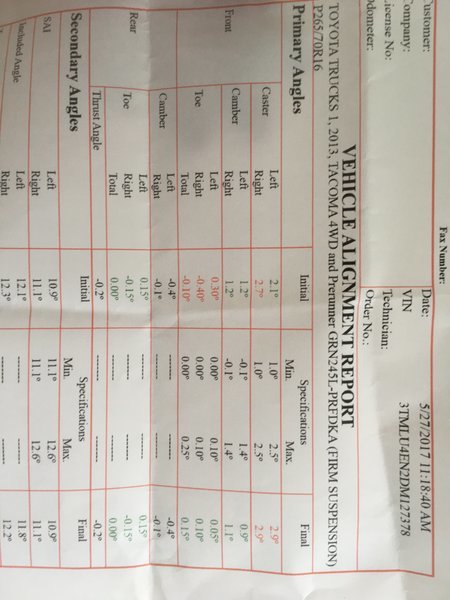 Fax Number:
ustomer:
Date: 5/27/2017 11:18:40 AM
ompany:
VIN 3TMLU4EN2DM127378
icense No:
Technician:
dometer:
Order No.:
VEHICLE ALIGNMENT REPORT
TOYOTA TRUCKS 1, 2013, TACOMA 4WD and Prerunner GRN245L-PRFDKA (FIRM SUSPENSION)
P265/70R16
Primary Angles Initial Specifications Final
Min. Max.
Front
Caster Left 2.1° 1.0° 2.5° 2.9°
Right 2.7° 1.0° 2.5° 2.9°
Camber Left 1.2° -0.1° 1.4° 0.9°
Right 1.2° -0.1° 1.4° 1.1°
Toe Left 0.30° 0.00° 0.10° 0.05°
Right -0.40° 0.00° 0.10° 0.10°
Total -0.10° 0.00° 0.25° 0.15°
Rear
Camber Left -0.4° -------- -------- -0.4°
Right -0.1° -------- -------- -0.1°
Toe Left 0.15° -------- -------- 0.15°
Right -0.15° -------- -------- -0.15°
Total 0.00° -------- -------- 0.00°
Thrust Angle -0.2° -------- -------- -0.2°
Secondary Angles Initial Specifications Final
Min. Max.
SAI Left 10.9° 11.1° 12.6° 10.9°
Right 11.1° 11.1° 12.6° 11.1°
Included Angle Left 12.1° -------- -------- 11.8°
Right 12.3° -------- -------- 12.2°